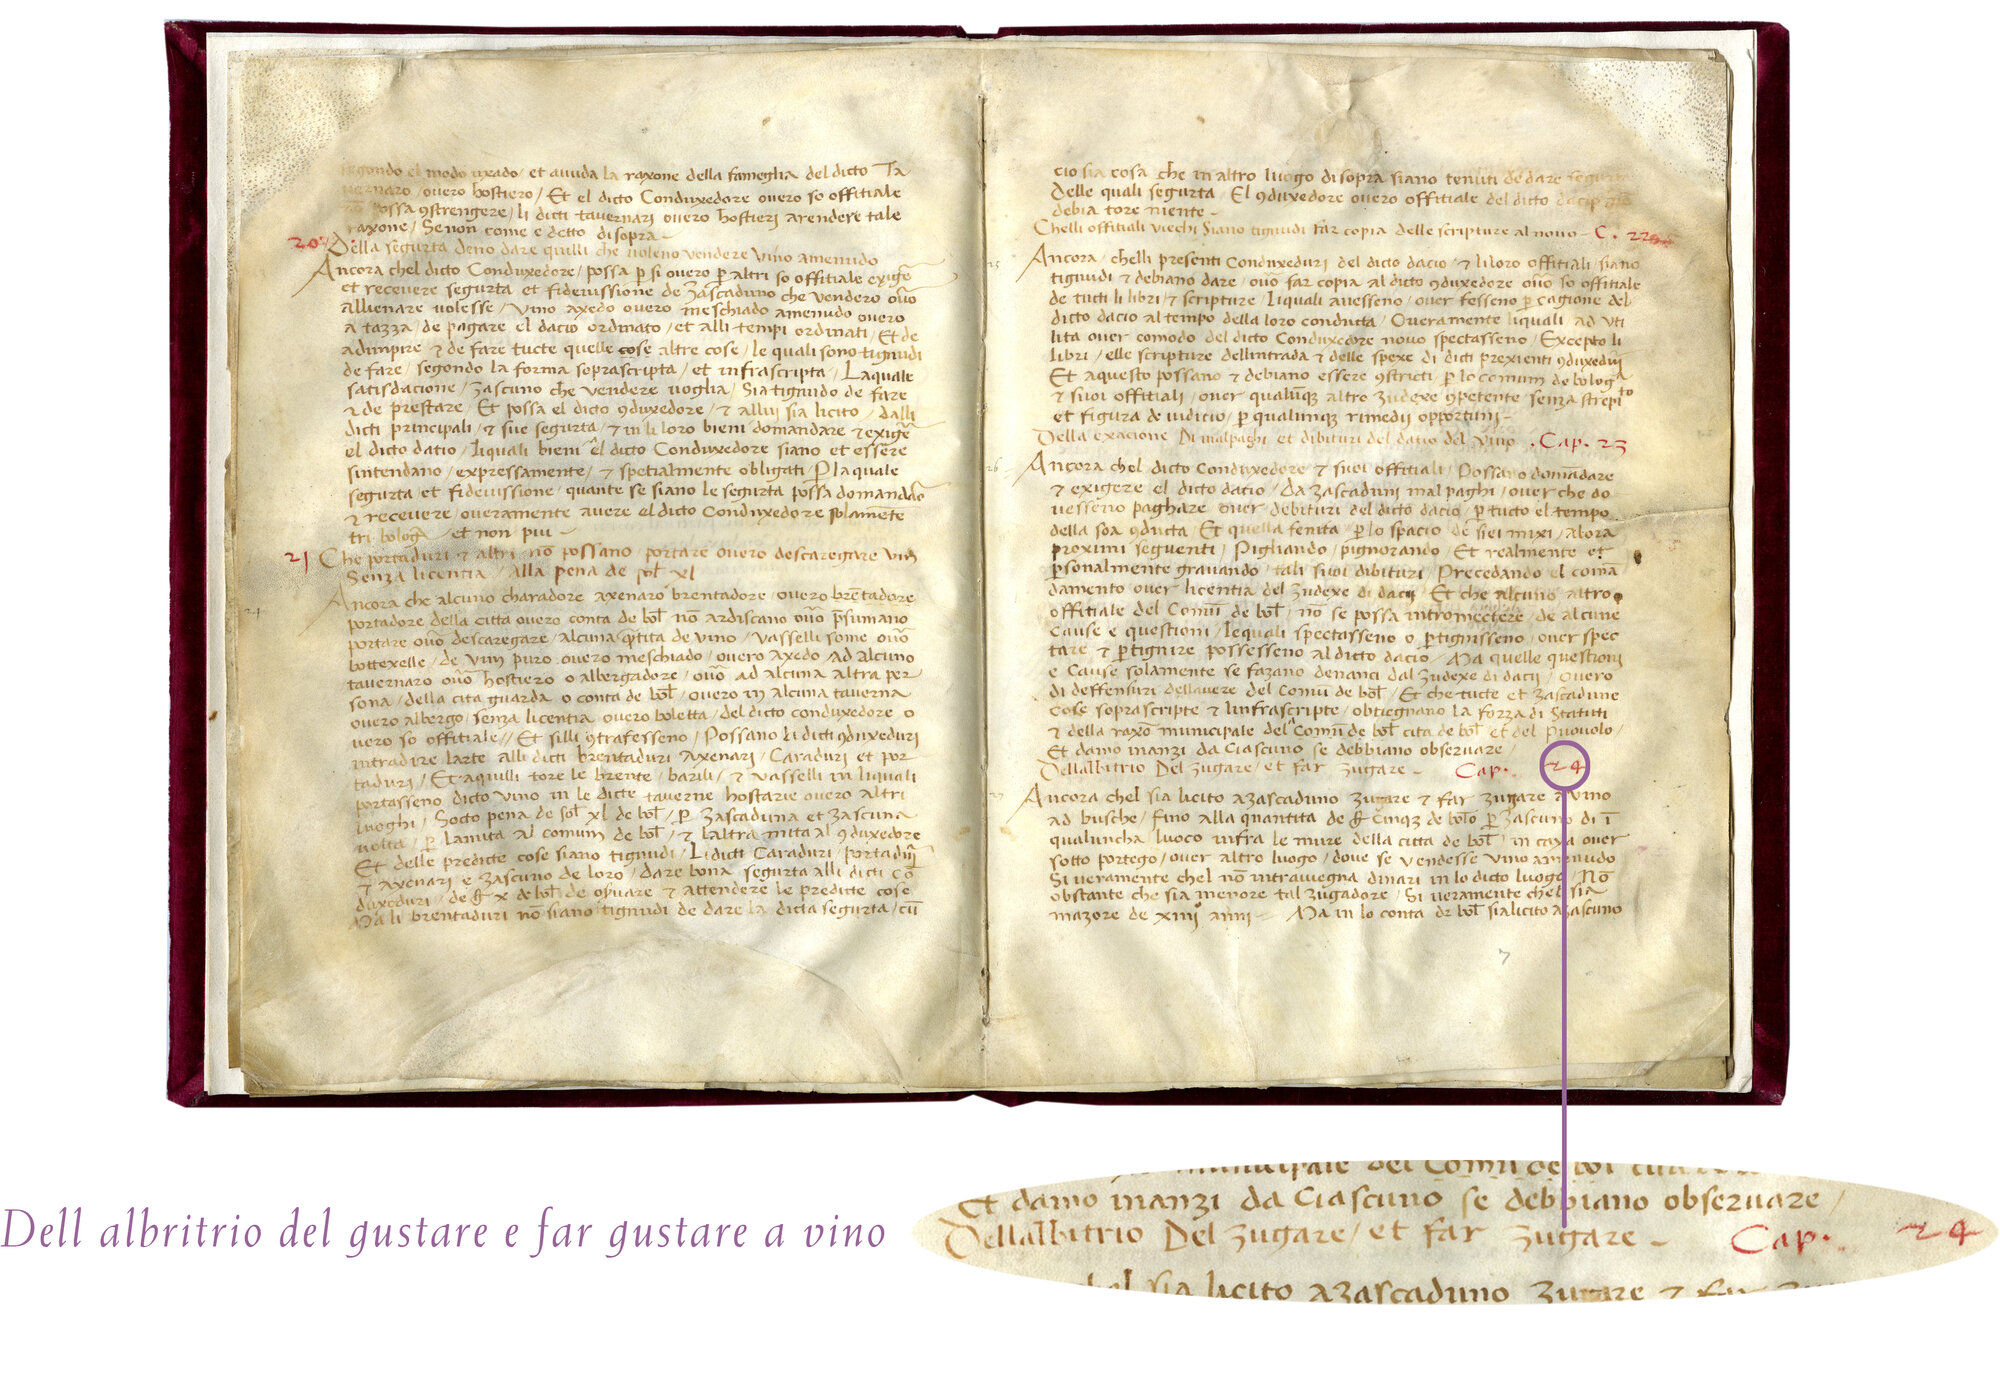 segondo el modo uxado / et auuda la raxone della fameglia del dicto Ta
uernaro / ouero hostiero / Et el dicto Conduxedore ouero so offitiale
nō possa 9strengere / li dicti tauernarj ouero hostierj arendere tale
raxone / Se non come e detto disopra –
20 Della segurta deno dare quilli che uoleno vendere vino amenudo
Ancora chel dicto Conduxedore / possa p si ouero p altri so offitiale exigē
et receuere segurta et fideiussione de zascaduno che vendero oūo
alluenare uolesse / vino axedo ouero meschiado amenudo ouero
a tazza / de pagare el dacio ordinato / et alli tempi ordinati / Et de
adimpire & de fare tucte quelle cose altre cose / le quali sono tignudi
de fare / segondo la forma soprascripta / et infrascripta / Laquale
satisdacione / zascuno che vendere uoglia / Sia tignudo de fare
& de prestare / Et possa el dicto 9duxedore / & allui sia licito / dalli
dicti principali / & sue segurta / & in li loro bieni domandare & exigē
el dicto datio / liquali bieni el dicto Conduxedore siano et essere
sintendano / expressamente / & spetialmente obligati / P laquale
segurta et fideiussione / quante se siano le segurta possa domandar
& receuere / oueramente auere el dicto Conduxedore solamēte
tri bologn̄ et non piu –
21 Che portaduri & altri nō possano / portare ouero descaregare vin
Senza licentia / alla pena de sol xl
Ancora che alcuno charadore axenaro brentadore / ouero brētadore
portadore della citta ouero conta de bol nō ardiscano oūo p̄sumano
portare oūo descaregare / alcuna q̄tita de vino / vasselli some oūo
bottexelle / de vin puro ouero meschiado / ouero axedo / ad alcuno
tauernaro oūo hostiero o albergadore / oūo ad alcuna altra per
sona / della cita guarda o conta de bol / ouero in alcuna tauerna
ouero albergo / senza licentia ouero boletta / del dicto conduxedore o
uero so offitiale // Et silli 9trafesseno / Possano li dicti 9duxeduri
intradire larte alli dicti brentaduri axenarj / Caraduri et por
taduri / Et aquilli tore le brente / barili / & vasselli in liquali
portasseno dicto vino in le dicte tauerne hostarie ouero altri
luoghi / Socto pena de sol xl de bol / p zascaduna et zascuna
uolta / p lamita al comum de bol / & laltra mitta al 9duxedore
Et delle predicte cose siano tignudi / Li dicti Caraduri / portaduri
& axenarj e zascuno de loro / dare bona segurta alli dicti cō
duxeduri / de £ x de bol de oseruare & attendere le predicte cose
Ma li brentaduri nō siano tignudi de dare la dicta segurta / cū
cio sia cosa che in altro luogo disopra siano tenuti de dare segurta
Delle quali segurta / El 9duxedore ouero offitiale del dicto dacio
debia tore niente –
Chelli offitiali viechi siano tignudi far copia delle scripture al nouo – C. 22
25 Ancora / chelli presenti Conduxeduri del dicto dacio / & li loro offitiali / siano
tignudi & debiano dare / oūo far copia al dicto 9duxedore oūo so offitiale
de tucti li libri / & scripture / liquali auesseno / ouer fesseno p cagione del
dicto dacio al tempo della loro condutta / Oueramente liquali ad vti
lita ouer comodo del dicto Conduxedore nouo spectasseno / Excepto li
libri / elle scripture dellintrada & delle spexe di dicti prexienti 9duxedurj
Et aquesto possano & debiano essere 9stricti / p lo comum de bologn̄
& suoi offitiali / ouer qualūq̄ altro zudexe 9petente / senza strepito
et figura de iudicio / p qualunq̄ rimedij opportuni –
Della exacione Di malpaghi et dibituri del datio del vino . Cap. 23
26 Ancora chel dicto Conduxedore & suoi offitiali / Possano domādare
& exigere el dicto datio / da zascaduni malpaghi / ouer che do
uesseno paghare ouer debituri del dicto dacio / p tucto el tempo
della soa 9ducta / Et quella fenita / p lo spacio de siei mixi / alora
proximi seguenti / Pigliando / pignorando / Et realmente et
psonalmente grauando / tali suoi dibituri / Precedando el comā
damento ouer licentia del zudexe di dacij / Et che alcuno altro
offitiale del Comū de bol / nō se possa intromectere / de alcune
Cause e questioni / lequali spectasseno o ptignisseno / ouer spec
tare & ptignire possesseno al dicto dacio / Ma quelle questioni
e Cause solamente se fazano denanci dal zudexe di dacij / Ouero
di deffensuri dellauere del Comū de bol / Et che tucte et zascadune
cose soprascripte & linfrascripte / obtiegnano la forza di Statuti
& della raxō municipale del Comū de bol cita de bol et del Puouolo /
Et damo inanzi da Ciascuno se debbiano obseruare /
Dellalbitrio Del zugare / et far zugare – Cap. 24
27 Ancora chel sia licito azascaduno zugare & far zugare & vino
ad busche / fino alla quantita de £ cinq̄ de bolo p zascuno di ī
qualuncha luoco infra le mure della citta de bol / in caxa ouer
sotto portego / ouer altro luogo / doue se vendesse vino amenudo
Si ueramente chel nō intrauegna dinari in lo dicto luogo / Nō
obstante che sia menore tal zugadore / Si ueramente chel sia
mazore de xiiij anni – Ma in lo conta de bol sia licito azascuno
7
Dell albritrio del gustare e far gustare a vino
municipale del Comū de bol
Et damo inanzi da Ciascuno se debbiano obseruare /
Dellalbitrio Del zugare / et far zugare – Cap. 24
chel sia licito azascaduno zugare & far